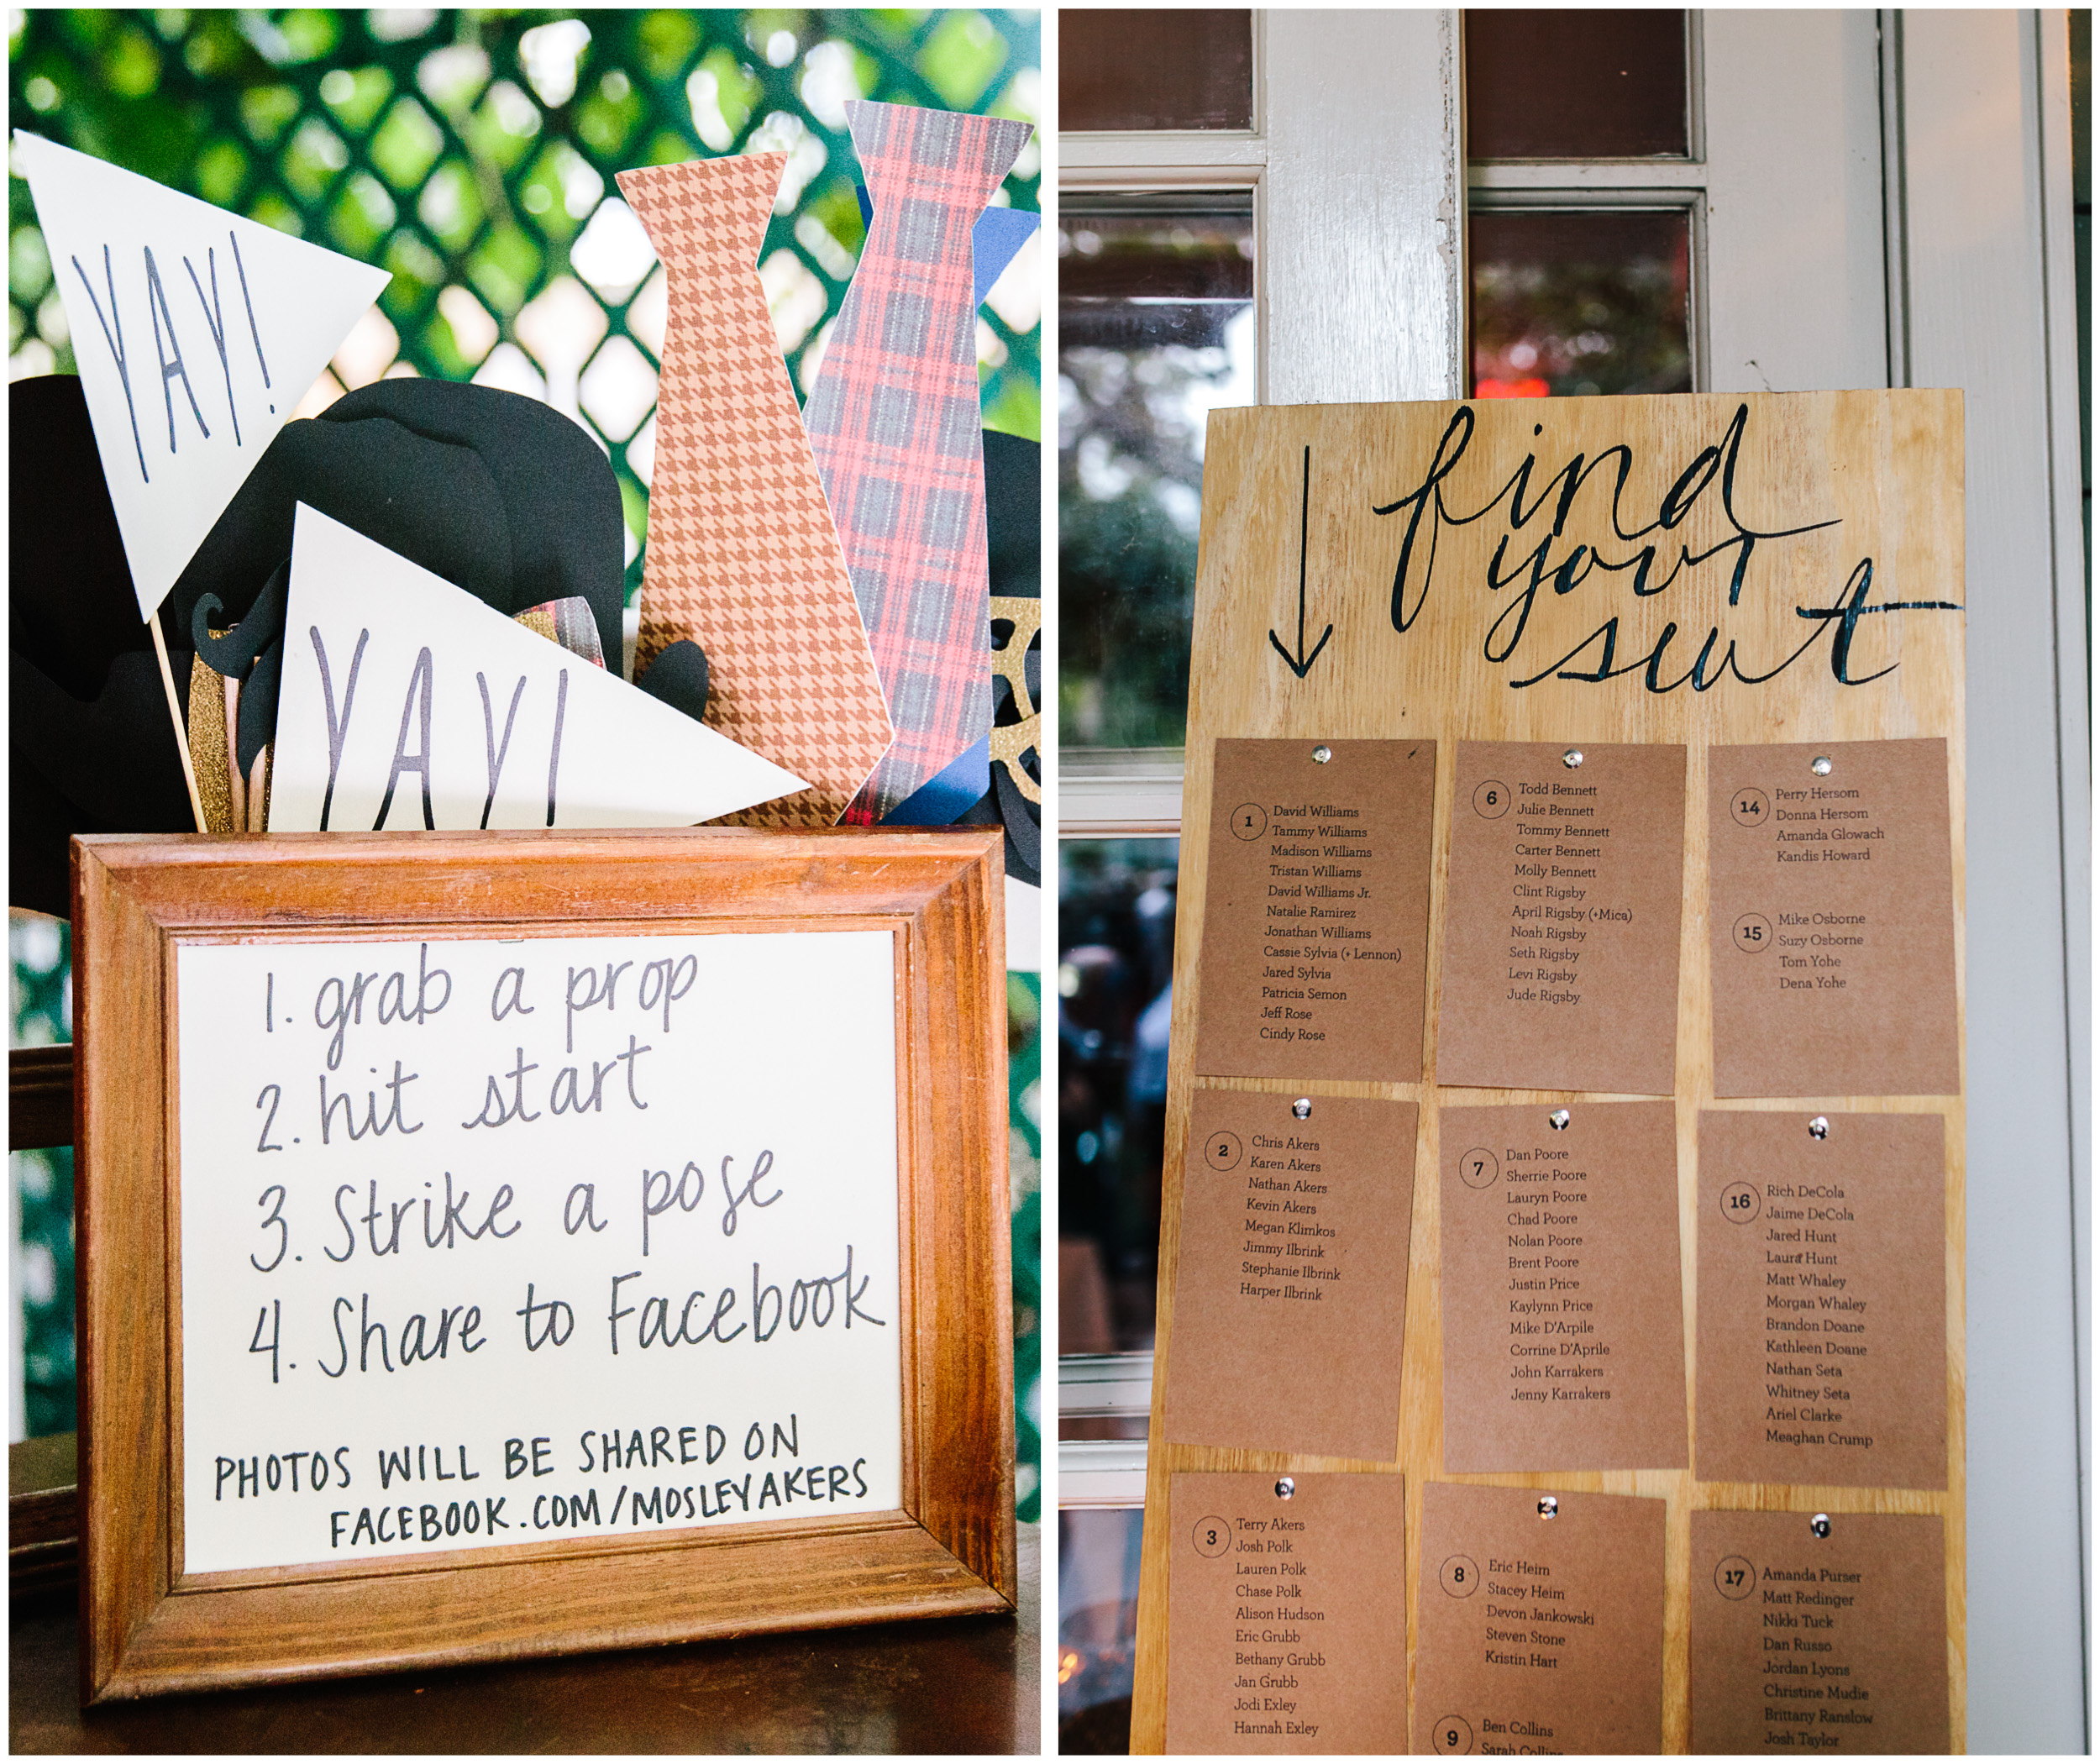 YAY!
YAY!
1. grab a prop
2. hit start
3. Strike a pose
4. Share to Facebook
PHOTOS WILL BE SHARED ON
FACEBOOK.COM/MOSLEYAKERS
find
your
seat
1
David Williams
Tammy Williams
Madison Williams
Tristan Williams
David Williams Jr.
Natalie Ramirez
Jonathan Williams
Cassie Sylvia (+ Lennon)
Jared Sylvia
Patricia Semon
Jeff Rose
Cindy Rose
6
Todd Bennett
Julie Bennett
Tommy Bennett
Carter Bennett
Molly Bennett
Clint Rigsby
April Rigsby (+Mica)
Noah Rigsby
Seth Rigsby
Levi Rigsby
Jude Rigsby
14
Perry Hersom
Donna Hersom
Amanda Glowach
Kandis Howard
15
Mike Osborne
Suzy Osborne
Tom Yohe
Dena Yohe
2
Chris Akers
Karen Akers
Nathan Akers
Kevin Akers
Megan Klimkos
Jimmy Ilbrink
Stephanie Ilbrink
Harper Ilbrink
7
Dan Poore
Sherrie Poore
Lauryn Poore
Chad Poore
Nolan Poore
Brent Poore
Justin Price
Kaylynn Price
Mike D'Arpile
Corrine D'Aprile
John Karrakers
Jenny Karrakers
16
Rich DeCola
Jaime DeCola
Jared Hunt
Laura Hunt
Matt Whaley
Morgan Whaley
Brandon Doane
Kathleen Doane
Nathan Seta
Whitney Seta
Ariel Clarke
Meaghan Crump
3
Terry Akers
Josh Polk
Lauren Polk
Chase Polk
Alison Hudson
Eric Grubb
Bethany Grubb
Jan Grubb
Jodi Exley
Hannah Exley
8
Eric Heim
Stacey Heim
Devon Jankowski
Steven Stone
Kristin Hart
9
Ben Collins
Sarah Collins
17
Amanda Purser
Matt Redinger
Nikki Tuck
Dan Russo
Jordan Lyons
Christine Mudie
Brittany Ranslow
Josh Taylor